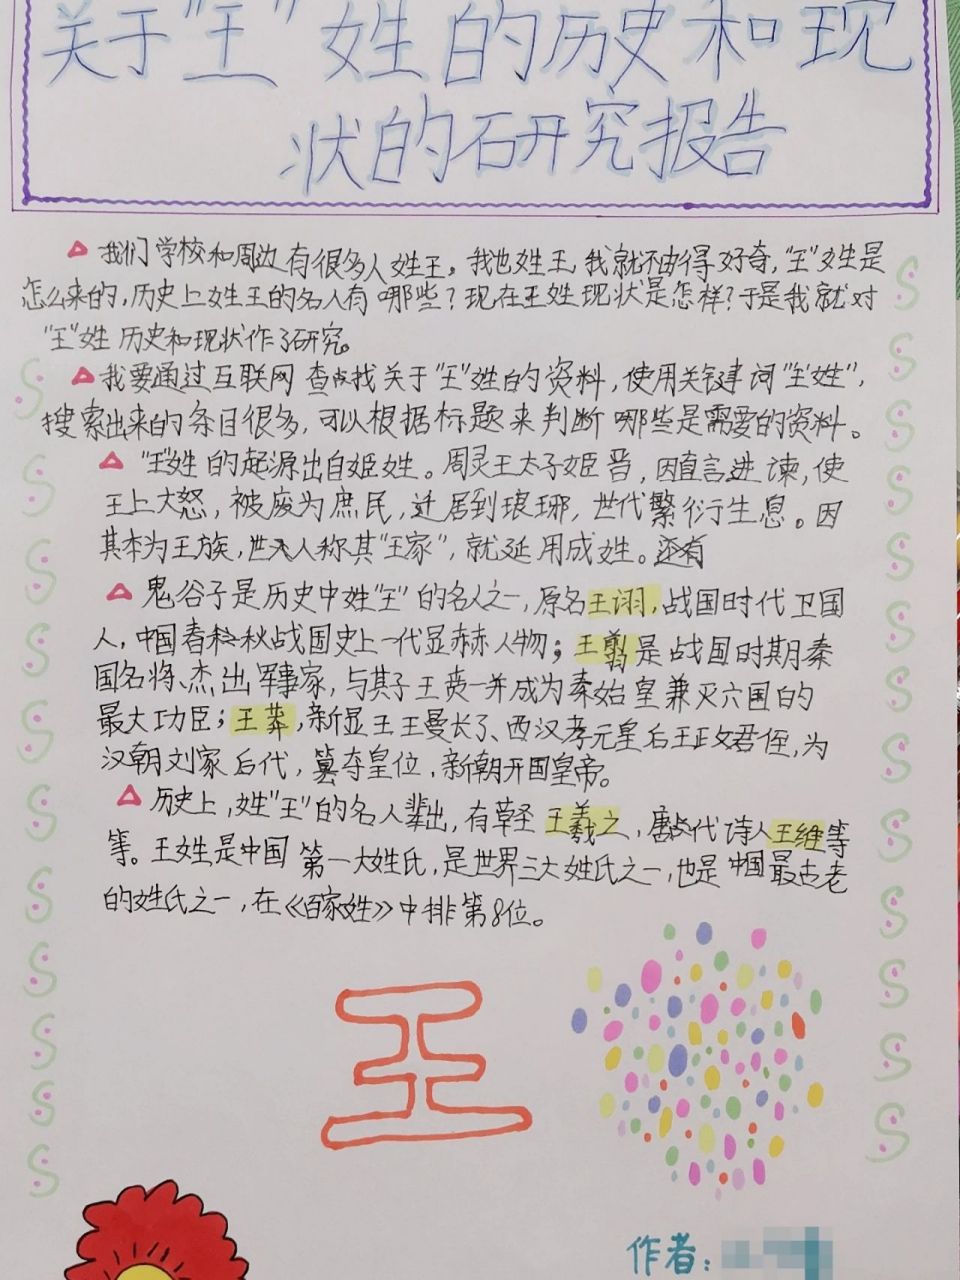 关于"王"姓的历史和现
状的研究报告
我们学校和周边有很多人姓王。我也姓王,我就不由得好奇,"王"姓是
怎么来的,历史上姓王的名人有哪些?现在王姓现状是怎样?于是我就对
"王"姓历史和现状作了研究。
我要通过互联网查找关于"王"姓的资料,使用关键词"王姓",
搜索出来的条目很多,可以根据标题来判断哪些是需要的资料。
"王"姓的起源出自姬姓。周灵王太子姬晋,因直言进谏,使
王上大怒,被废为庶民,迁居到琅琊,世代繁衍生息。因
其本为王族,世人称其"王家",就延用成姓。还有
鬼谷子是历史中姓"王"的名人之一,原名王诩,战国时代卫国
人,中国春秋战国史上一代显赫人物;王翦是战国时期秦
国名将、杰出军事家,与其子王贲一并成为秦始皇兼灭六国的
最大功臣;王莽,新显王王曼长子、西汉孝元皇后王政君侄,为
汉朝刘家后代,篡夺皇位,新朝开国皇帝。
历史上,姓"王"的名人辈出,有草圣王羲之,唐代诗人王维等
等。王姓是中国第一大姓氏,是世界三大姓氏之一,也是中国最古老
的姓氏之一,在《百家姓》中排第8位。
王
作者: